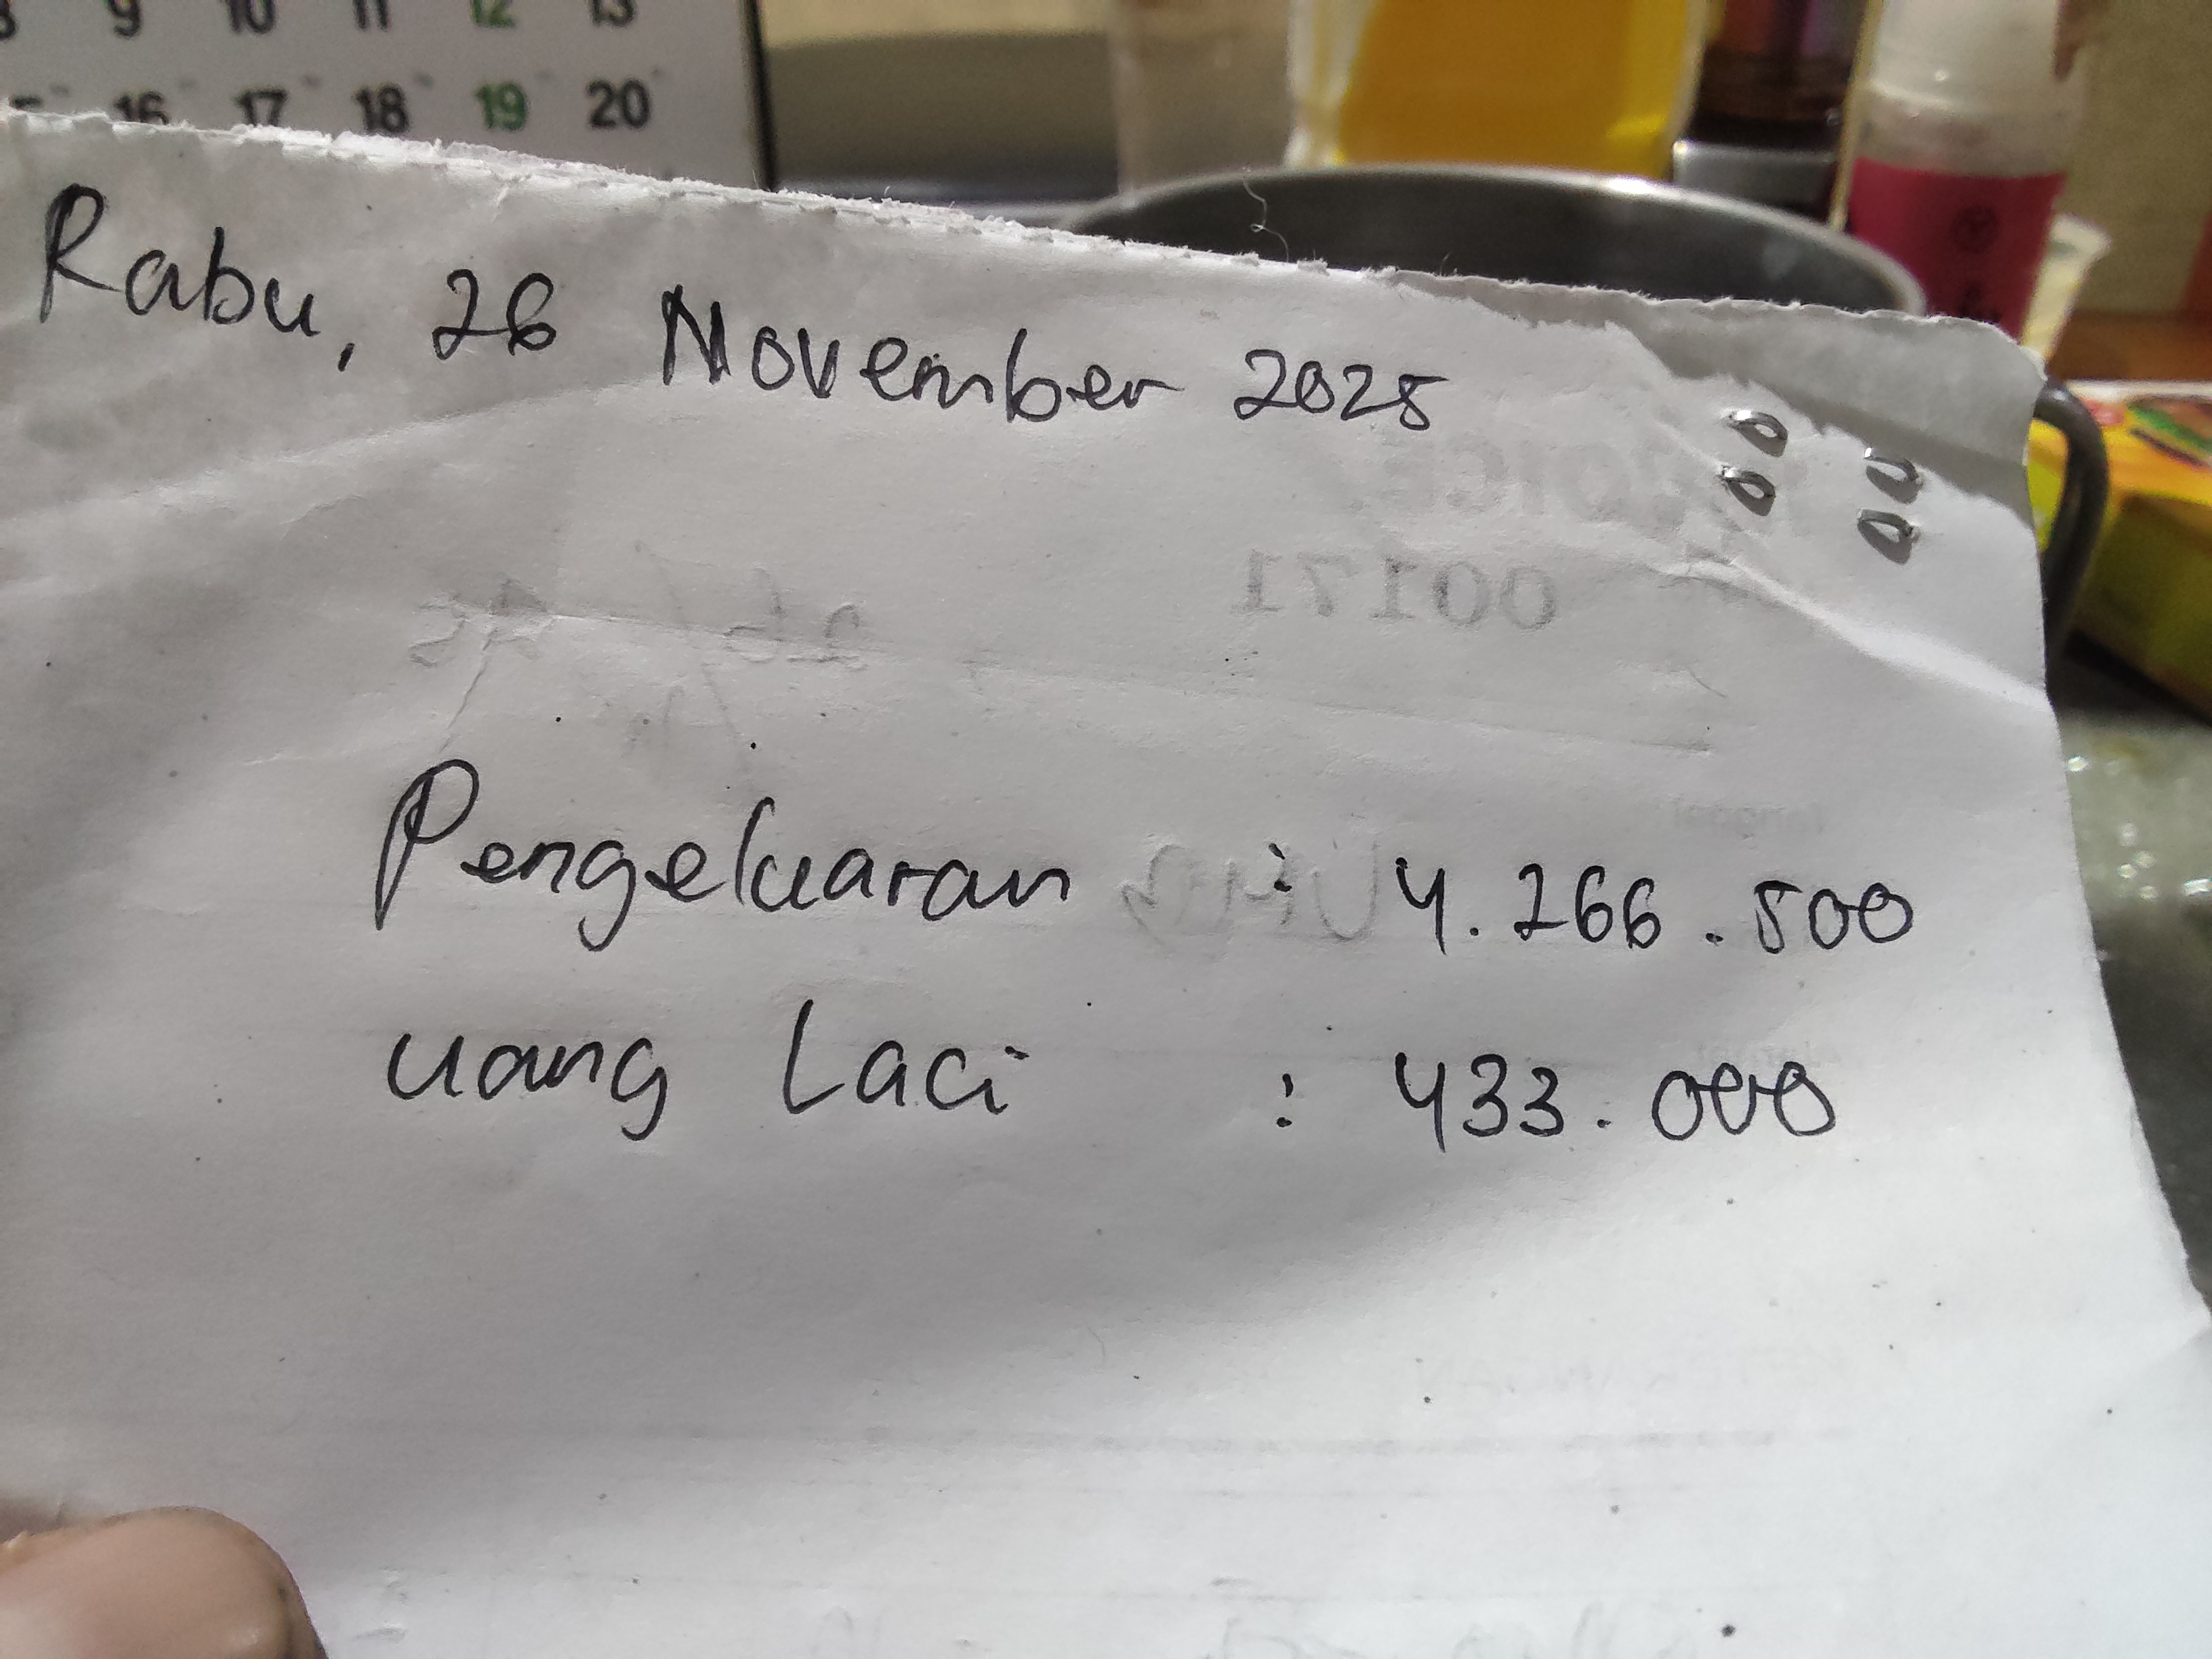 9 10 11 12 13
16 17 18 19 20
Rabu, 26 November 2025
00171
Pengeluaran : 4.266.500
uang Laci : 433.000